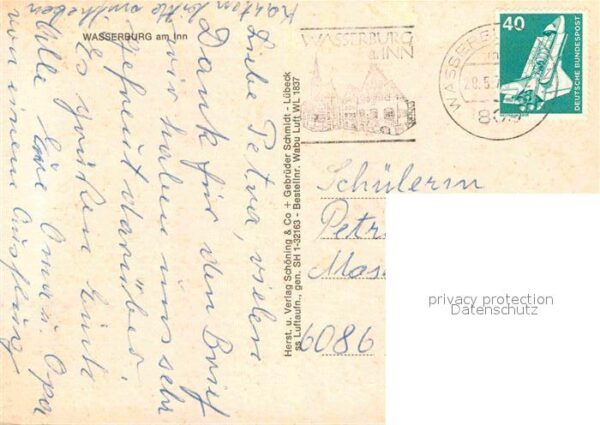 Karten bitte aufheben
WASSERBURG am Inn
Liebe Petra, vielen
Dank für den Brief
wir haben uns sehr
gefreut darüber.
Es grüßen Euch
Alle Eure Oma u. Opa
von einem Ausflug
Herst. u. Verlag Schöning & Co + Gebrüder Schmidt - Lübeck
ss Luftaufn., gen. SH 1-32163 - Bestellnr. Wabu Luft WL 1837
WASSERBURG
a. INN
40
DEUTSCHE BUNDESPOST
Schülerin
6086
privacy protection
Datenschutz